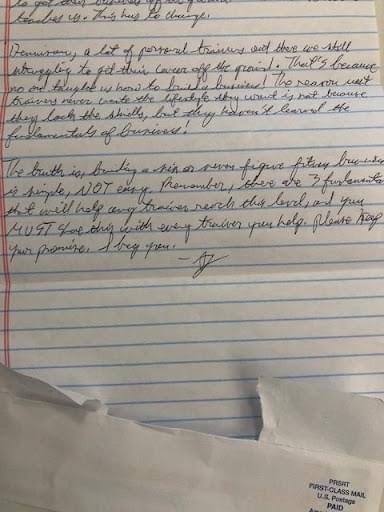 to get their business off the ground
teaches us. This has to change.
a lot of personal trainers out there are still
struggling to get their career off the ground. That's because
no one taught us how to build a business! The reason most
trainers never the lifestyle they want is not because
they lack the skills, but they haven't learned the
fundamentals of business.
The truth is, building a six or seven figure fitness business
is simple, NOT easy. Remember, there are 3 fundamentals
that will help any trainer reach this level, and you
MUST share this with every trainer you help. Please keep
your promise. I beg you.
PRSRT
FIRST-CLASS MAIL
U.S. Postage
PAID